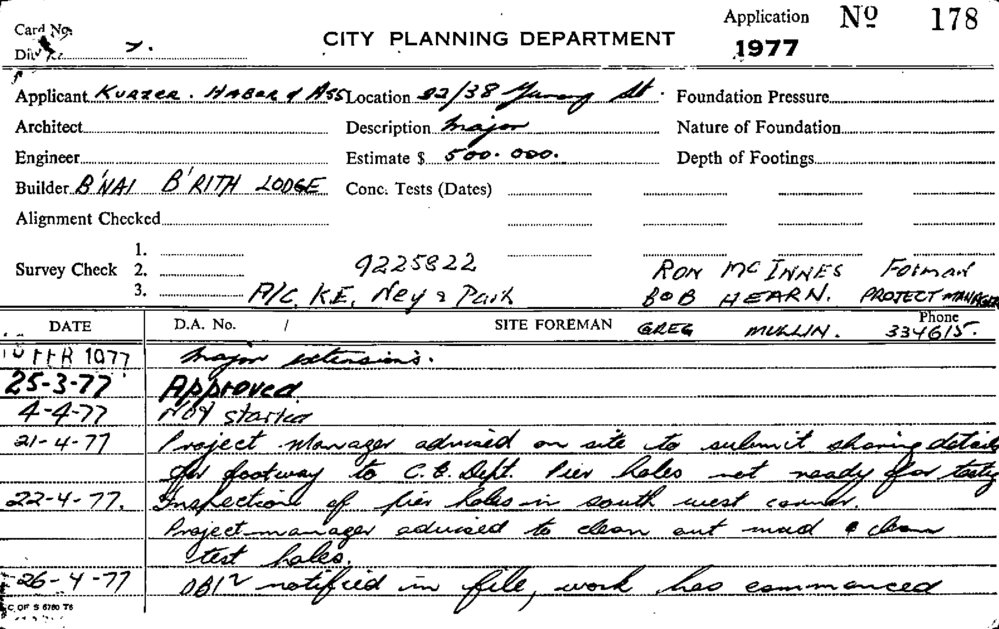 Card No.
Application No 178
CITY PLANNING DEPARTMENT
1977
Applicant KURZER. HABER & ASS Location 22/38 Yurong St. Foundation Pressure
Architect Description Major Nature of Foundation
Engineer Estimate $ 500.000. Depth of Footings
Builder B'NAI B'RITH LODGE Conc. Tests (Dates)
Alignment Checked
1.
Survey Check 2. 9225822 RON MC INNES FORMAN
3. A/C, K.E, Ney & Park BOB HEARN. PROJECT MANAGER
DATE D.A. No. / SITE FOREMAN GREG MULLIN. Phone 334615.
FEB 1977 Major extensions.
25-3-77 Approved
4-4-77 Not started
21-4-77 Project Manager advised on site to submit shoring details
for footway to C.E. Dept. Pier holes not ready for testing
22-4-77. Inspection of pier holes in south west corner.
Project manager advised to clean out mud & clean
test holes.
26-4-77 notified in file, work has commenced
C OF S 6760 T6